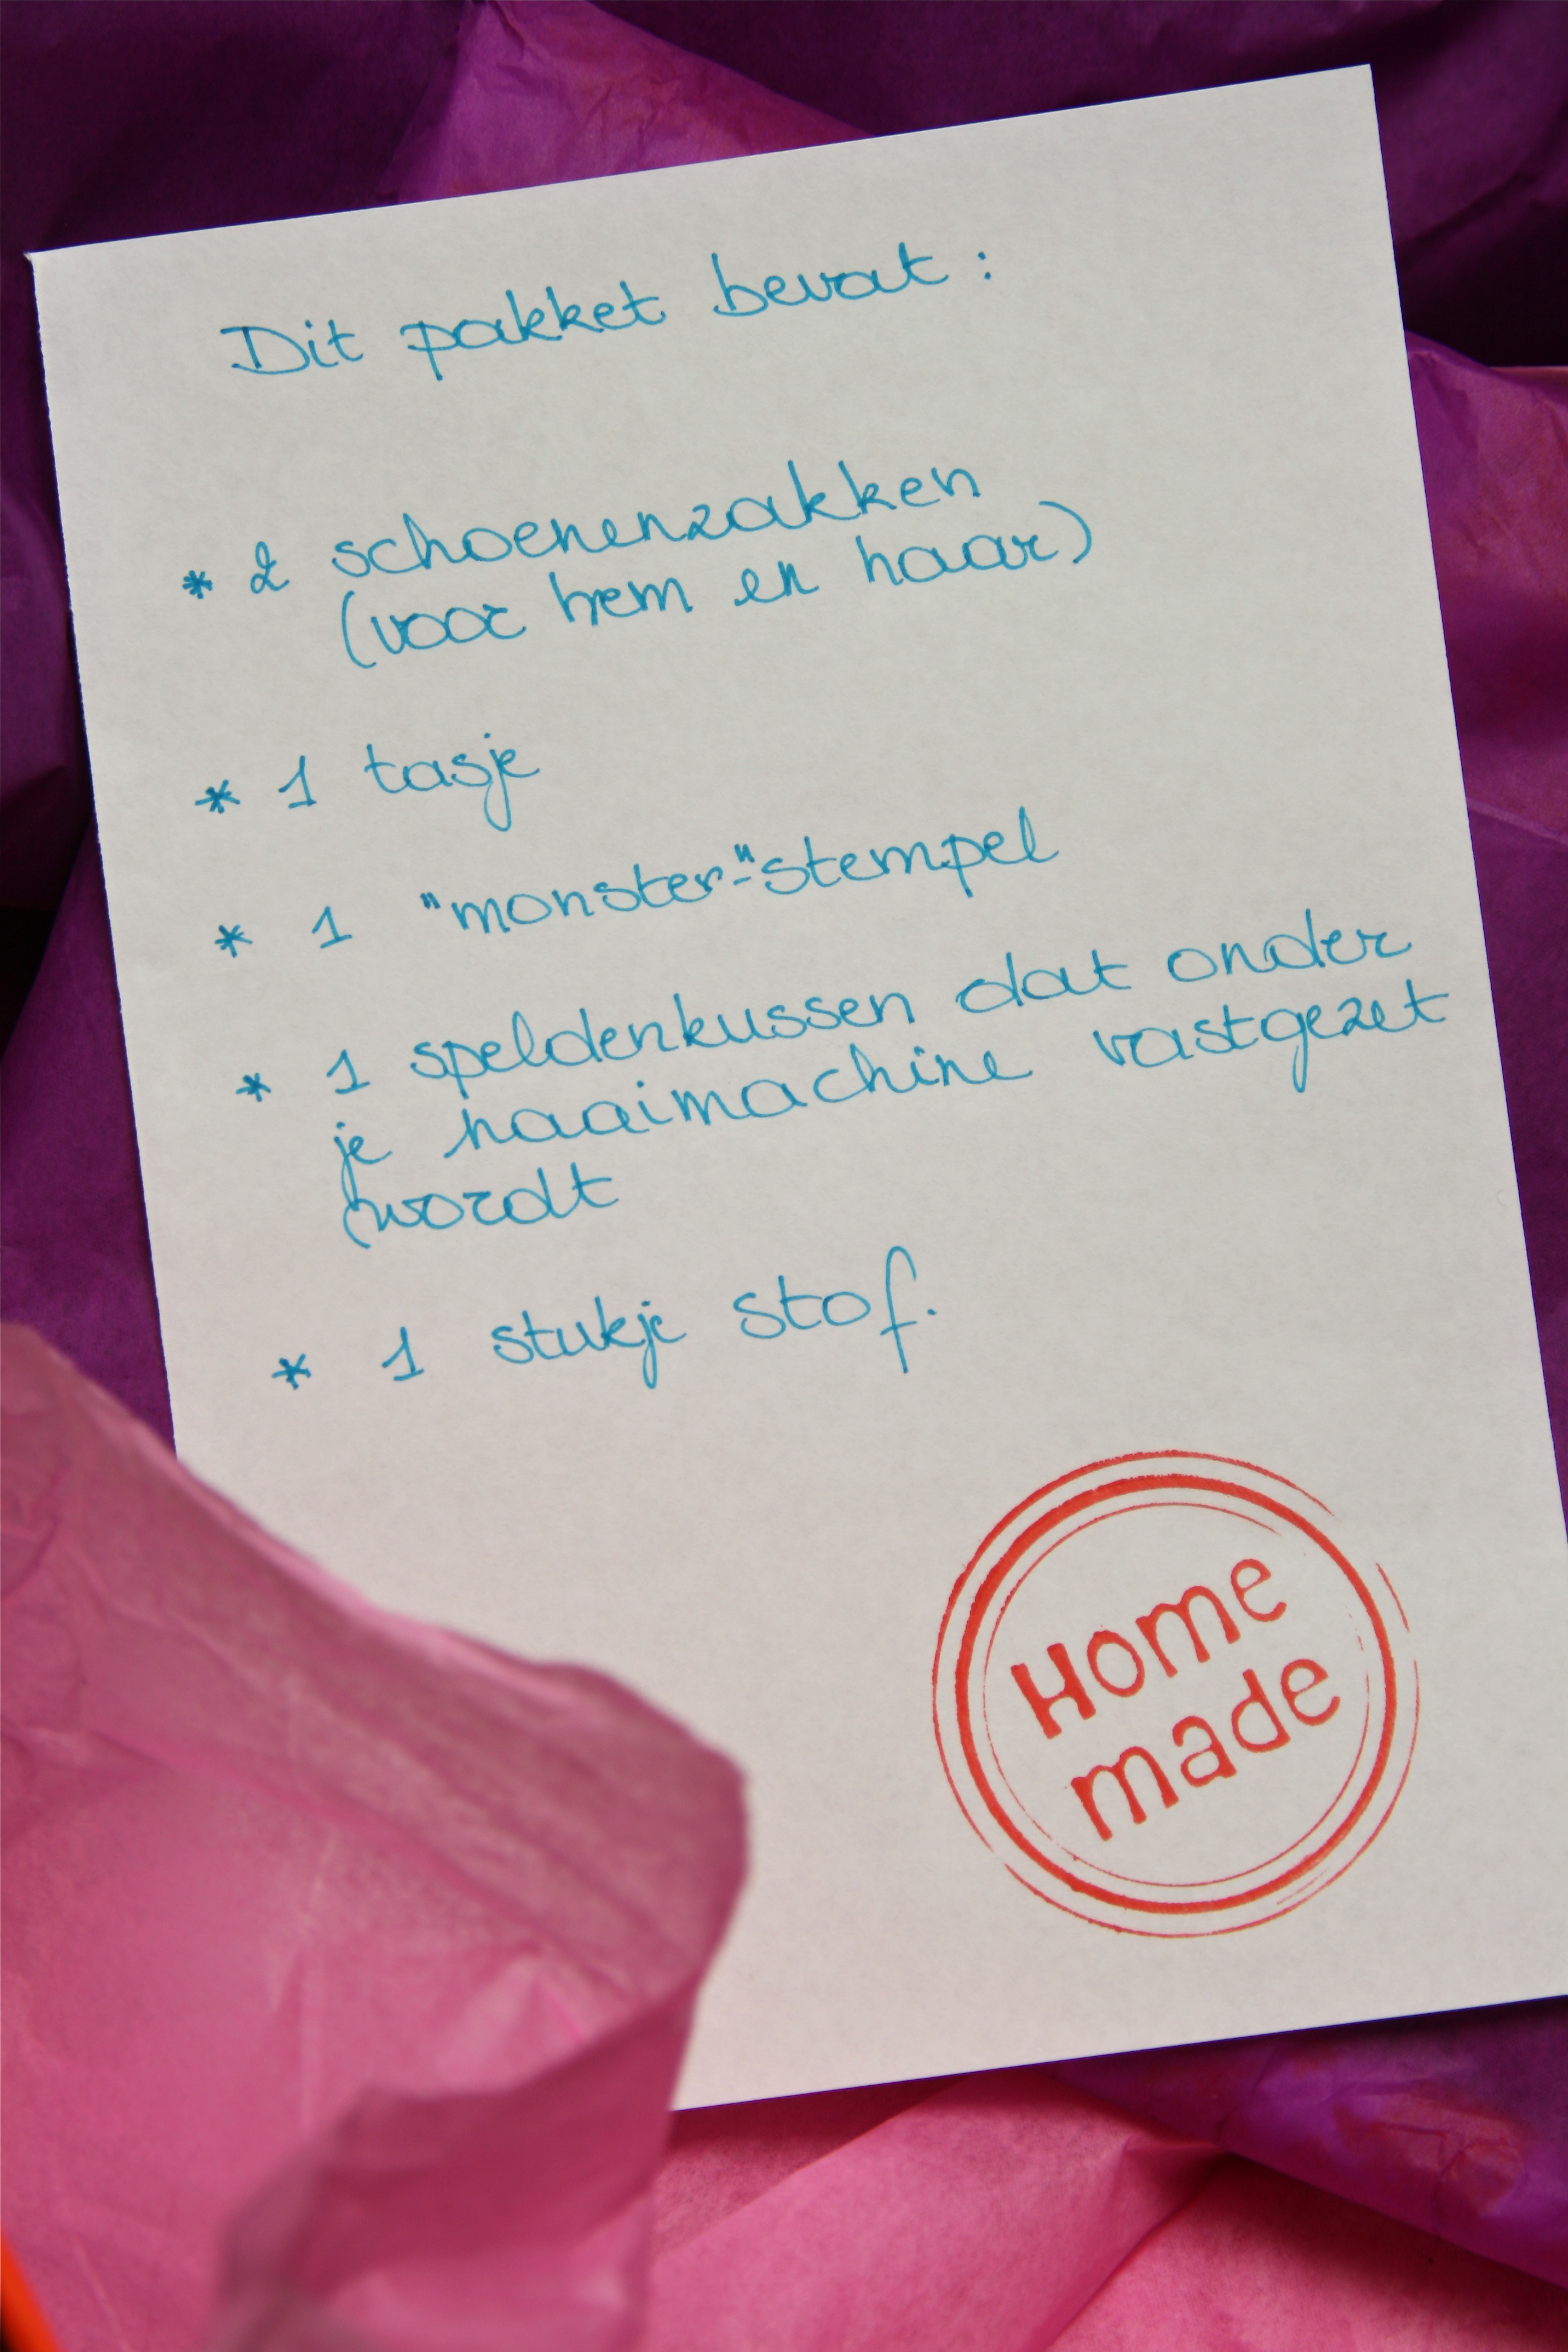 Dit pakket bevat :
* 2 schoenenzakken
(voor hem en haar)
* 1 tasje
* 1 "monster-"stempel
* 1 speldenkussen dat onder
je naaimachine vastgezet
wordt
* 1 stukje stof.
Home
made